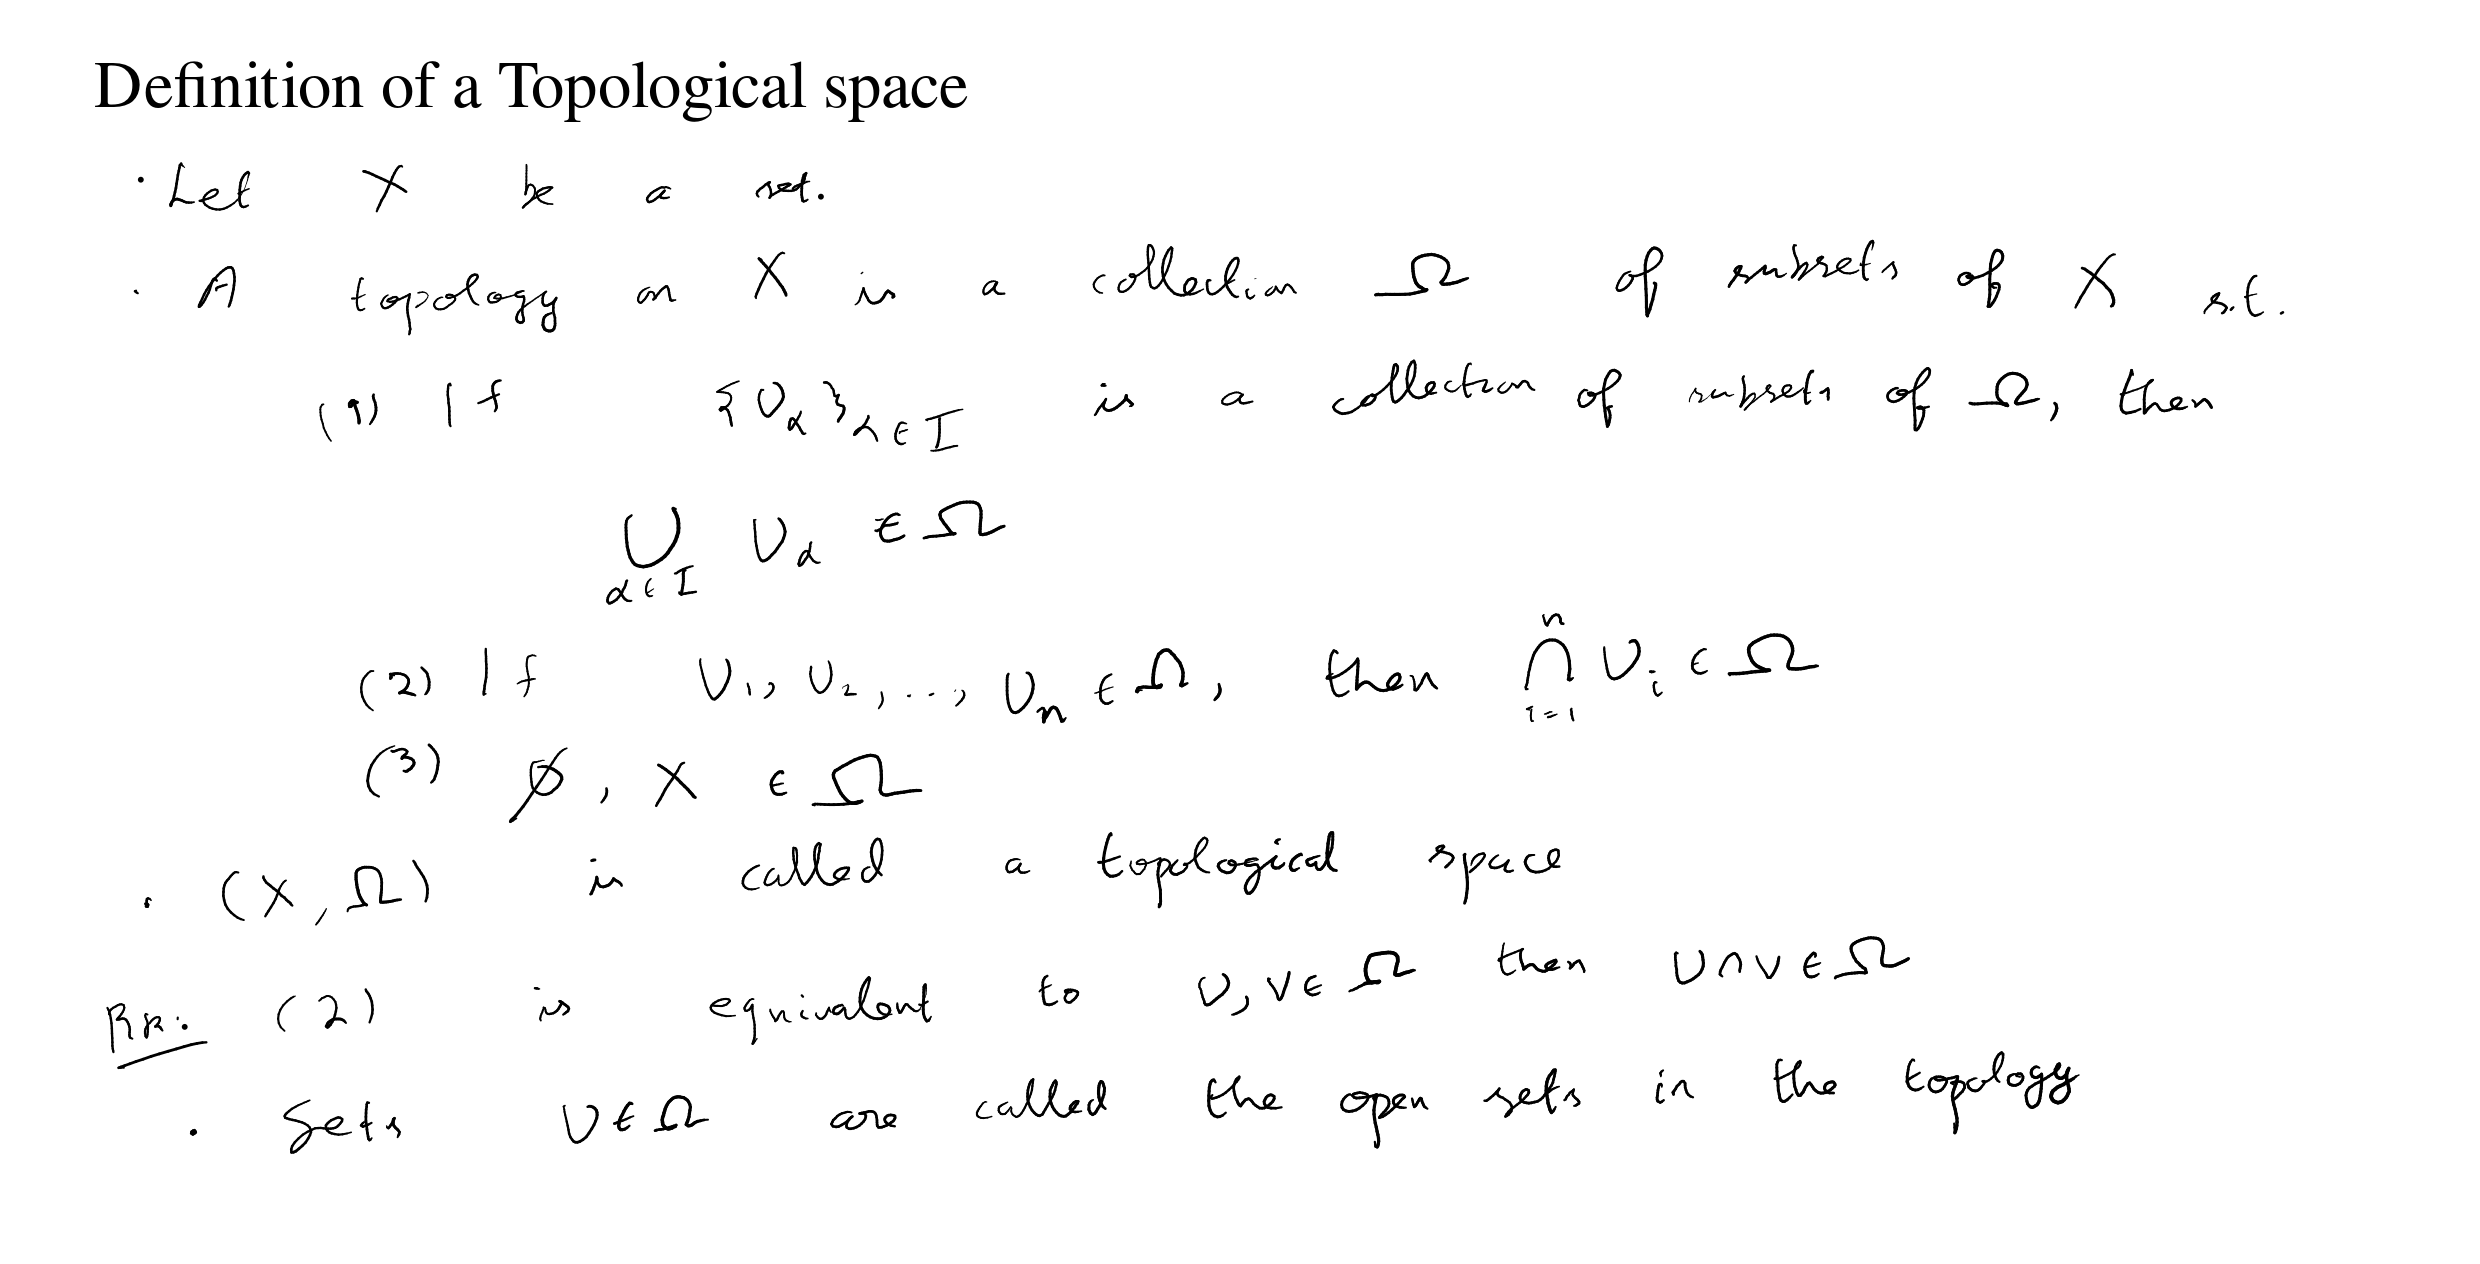 Definition of a Topological space
· Let X be a set.
· A topology on X is a collection Ω of subsets of X s.t.
(1) If {U_α}_{α∈I} is a collection of subsets of Ω, then
⋃_{α∈I} U_α ∈ Ω
(2) If U₁, U₂, ..., Uₙ ∈ Ω, then ⋂_{i=1}^{n} U_i ∈ Ω
(3) ∅, X ∈ Ω
· (X, Ω) is called a topological space
Rk: (2) is equivalent to U, V ∈ Ω then U∩V ∈ Ω
· Sets U ∈ Ω are called the open sets in the topology